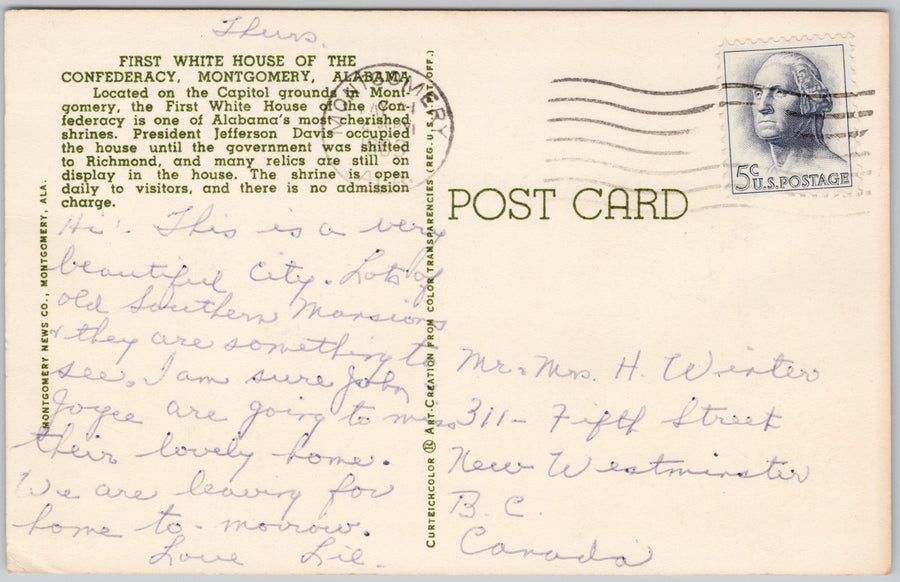 Thurs.
FIRST WHITE HOUSE OF THE
CONFEDERACY, MONTGOMERY, ALABAMA
Located on the Capitol grounds in Mont-
gomery, the First White House of the Con-
federacy is one of Alabama's most cherished
shrines. President Jefferson Davis occupied
the house until the government was shifted
to Richmond, and many relics are still on
display in the house. The shrine is open
daily to visitors, and there is no admission
charge.
Hi! This is a very
beautiful city. Lots of
old Southern Mansions
& they are something to
see. I am sure John
Joyce are going to miss
their lovely home.
We are leaving for
home to-morrow.
Love Lil.
MONTGOMERY NEWS CO., MONTGOMERY, ALA.
CURTEICHCOLOR ® ART-CREATION FROM COLOR TRANSPARENCIES (REG. U.S.A. PAT. OFF.)
MONTGOMERY
5c U.S. POSTAGE
POST CARD
Mr. & Mrs. H. Winter
311- Fifth Street
New Westminster
B.C.
Canada